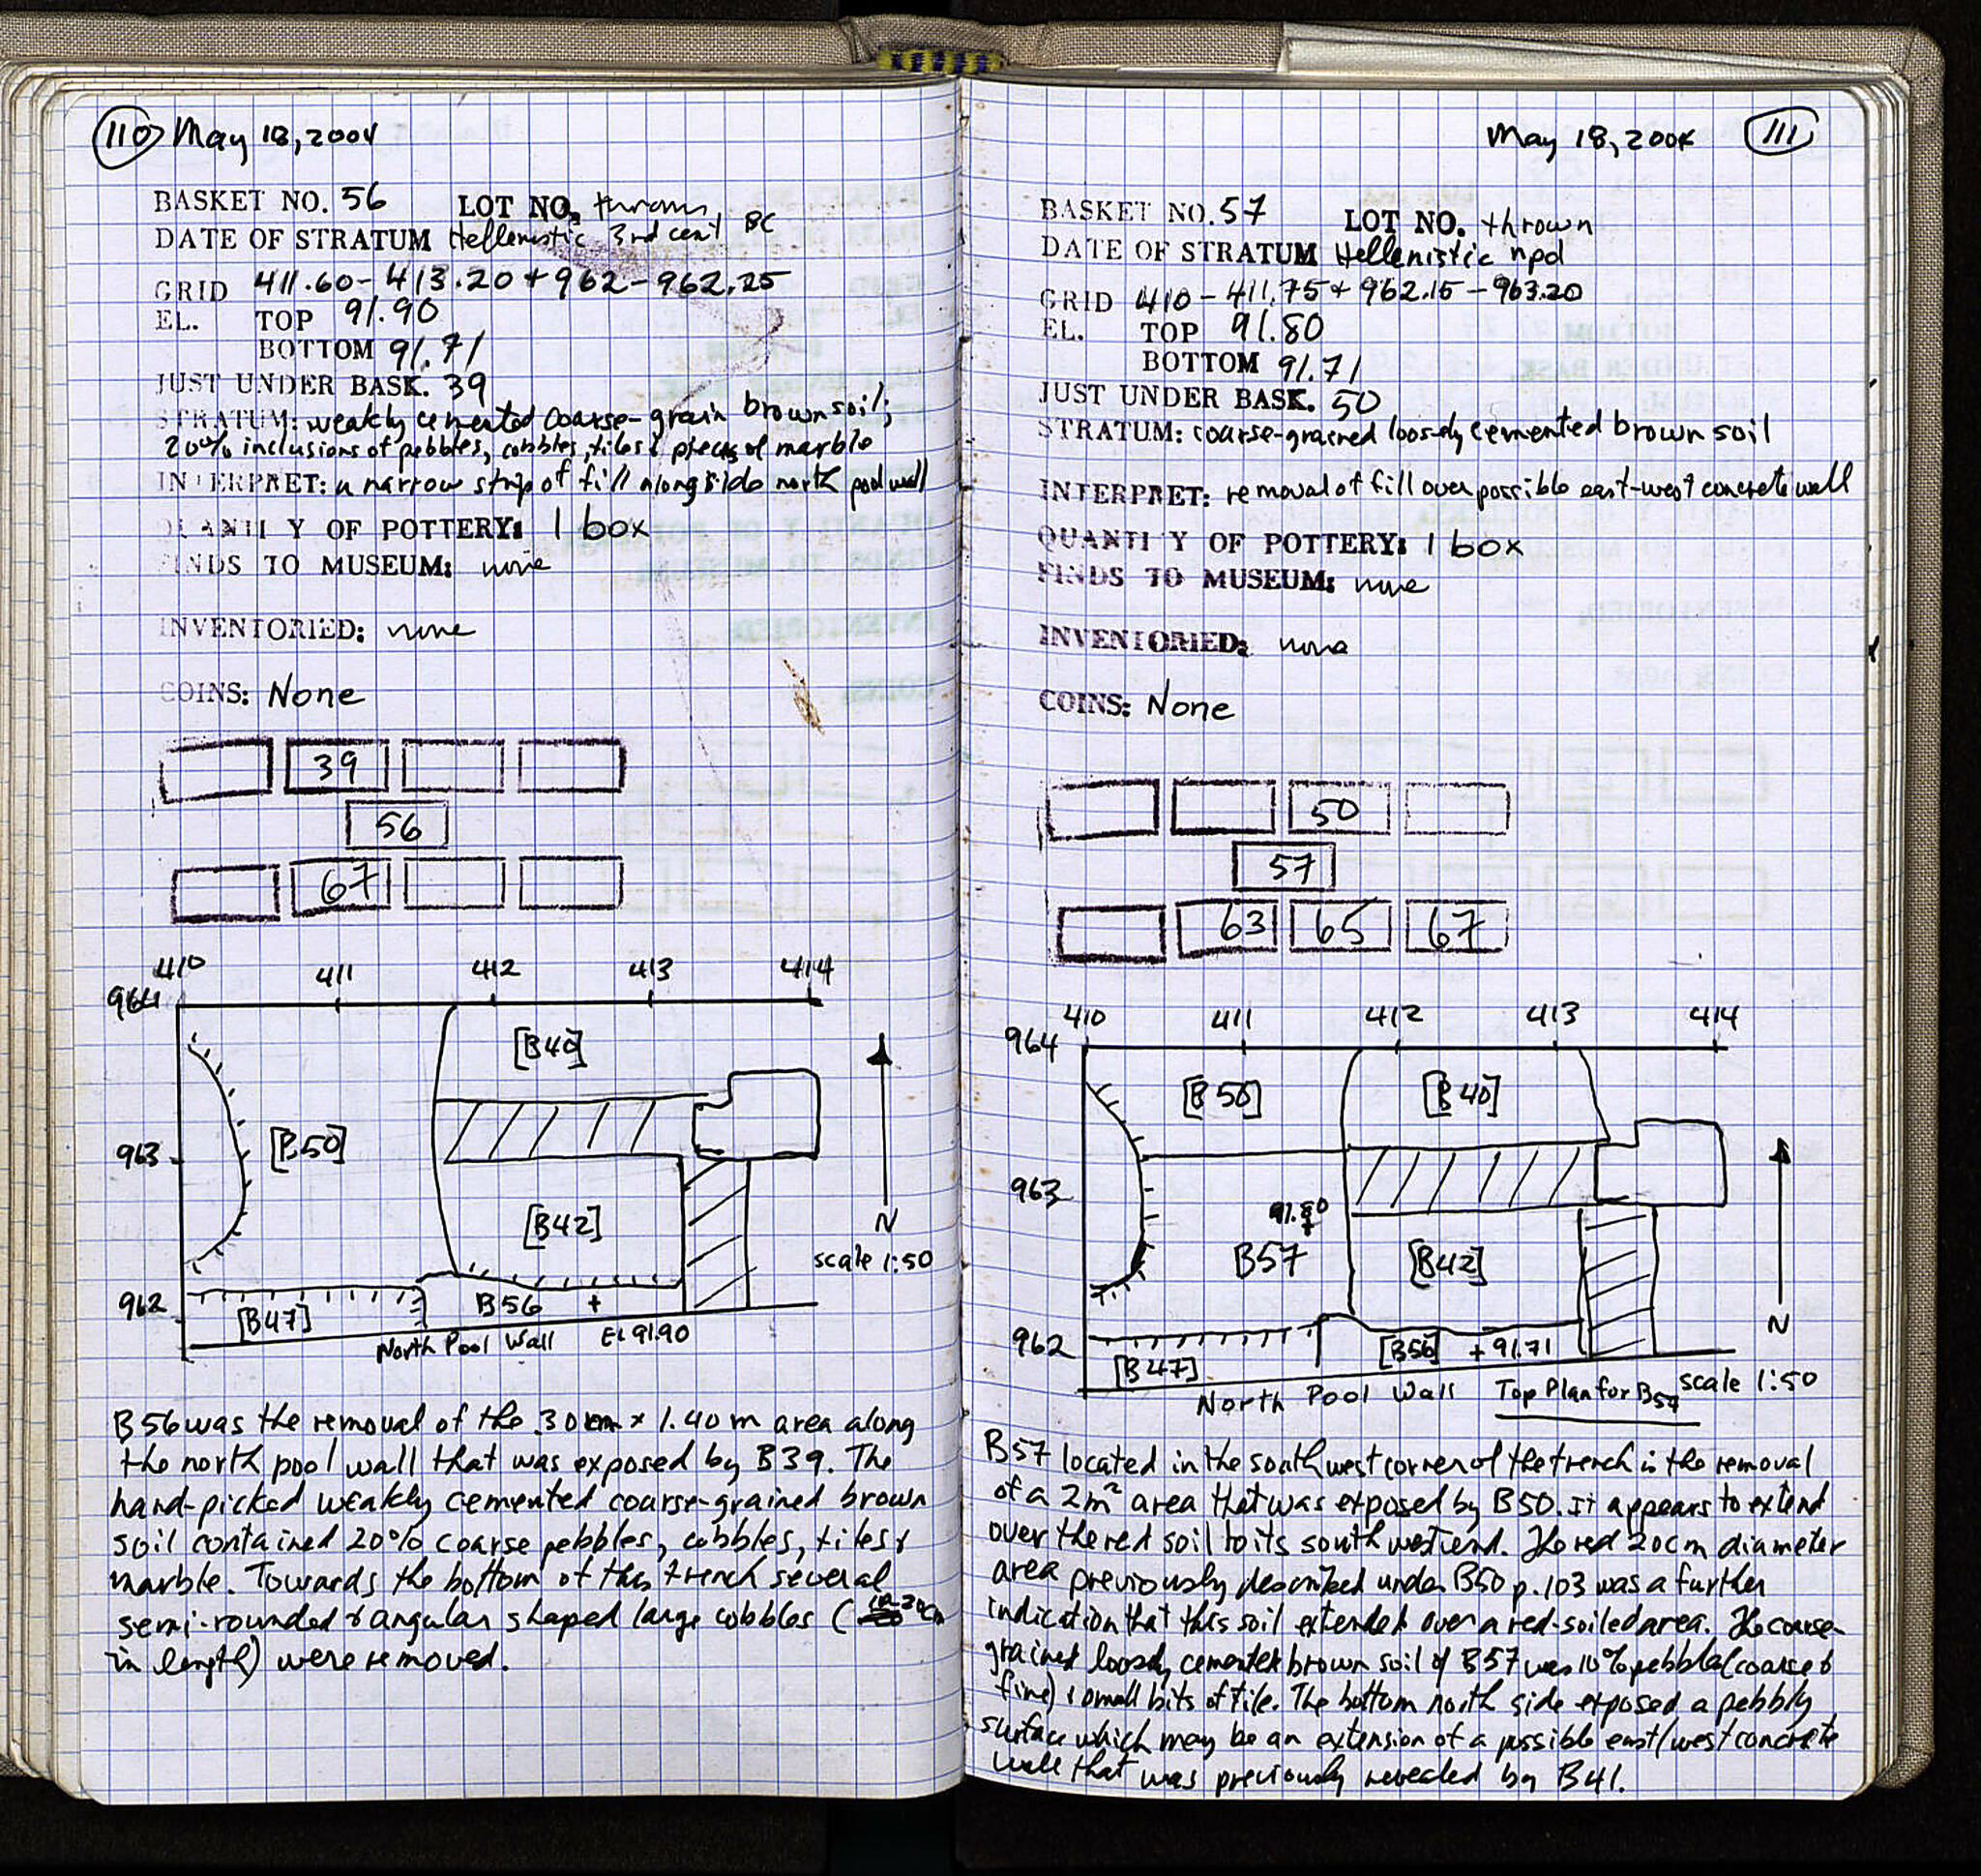 110 May 18, 2004
BASKET NO. 56 LOT NO. thrown
DATE OF STRATUM Hellenistic 3rd cent BC
GRID 411.60-413.20 + 962-962.25
EL. TOP 91.90
BOTTOM 91.71
JUST UNDER BASK. 39
STRATUM: weakly cemented coarse-grain brown soil;
20% inclusions of pebbles, cobbles, tiles & pieces of marble
INTERPRET: a narrow strip of fill alongside north pool wall
QUANTITY OF POTTERY: 1 box
FINDS TO MUSEUM: none
INVENTORIED: none
COINS: None
39
56
67
410 411 412 413 414
964
[B40]
963
[B50]
[B42]
N
scale 1:50
962
[B47]
B56 +
North Pool Wall El 91.90
B56 was the removal of the .30 m x 1.40 m area along
the north pool wall that was exposed by B39. The
hand-picked weakly cemented coarse-grained brown
soil contained 20% coarse pebbles, cobbles, tiles &
marble. Towards the bottom of this trench several
semi-rounded & angular shaped large cobbles (ca. 30cm
in length) were removed.
May 18, 2004 111
BASKET NO. 57 LOT NO. thrown
DATE OF STRATUM Hellenistic npd
GRID 410-411.75 + 962.15-963.20
EL. TOP 91.80
BOTTOM 91.71
JUST UNDER BASK. 50
STRATUM: coarse-grained loosely cemented brown soil
INTERPRET: removal of fill over possible east-west concrete wall
QUANTITY OF POTTERY: 1 box
FINDS TO MUSEUM: none
INVENTORIED: none
COINS: None
50
57
63 65 67
410 411 412 413 414
964
[B50] [B40]
963
91.80
+
B57 [B42]
N
962
[B47] [B56] + 91.71
North Pool Wall Top Plan for B57 scale 1:50
B57 located in the southwest corner of the trench is the removal
of a 2m² area that was exposed by B50. It appears to extend
over the red soil to its south west end. The red 20cm diameter
area previously described under B50 p.103 was a further
indication that this soil extended over a red-soiled area. The coarse-
grained loosely cemented brown soil of B57 was 10% pebbles (coarse &
fine) & small bits of tile. The bottom north side exposed a pebbly
surface which may be an extension of a possible east/west concrete
wall that was previously revealed by B41.